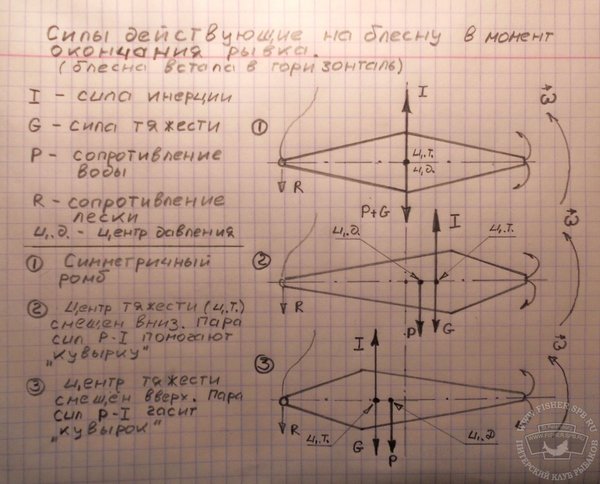 Силы действующие на блесну в момент
окончания рывка.
(блесна встала в горизонталь)
I - сила инерции
G - сила тяжести
P - сопротивление
воды
R - сопротивление
лески
ц.д. - центр давления
① Симметричный
ромб
② Центр тяжести (ц.т.)
смещен вниз. Пара
сил P-I помогают
„кувырку"
③ Центр тяжести
смещен вверх. Пара
сил P-I гасит
„кувырок"
①
I
ц.т.
ц.д.
R
P+G
+З
②
I
ц.д.
ц.т.
R
P
G
+З
③
I
R
ц.т.
G
P
ц.д
+З
WWW.FISHER.SPB.RU
ПИТЕРСКИЙ КЛУБ РЫБАКОВ